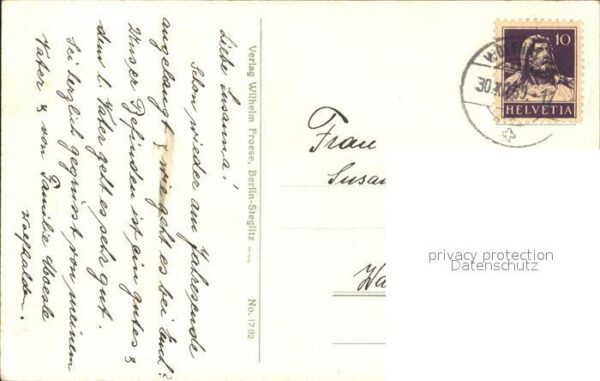 Liebe Susanna!
Schon wieder am Jahresende
angelangt & wie geht es bei Euch?
Unser Befinden ist ein gutes &
dem l. Vater geht es sehr gut.
Sei herzlich gegrüsst von meinem
Vater & von Familie
Verlag Wilhelm Froese, Berlin-Steglitz
No. 1702
10
HELVETIA
30
Frau
Susan
Wa
privacy protection
Datenschutz